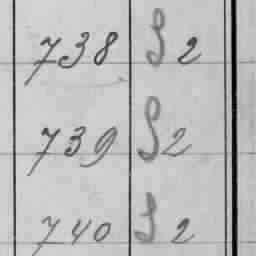 738 S 2
739 S 2
740 S 2